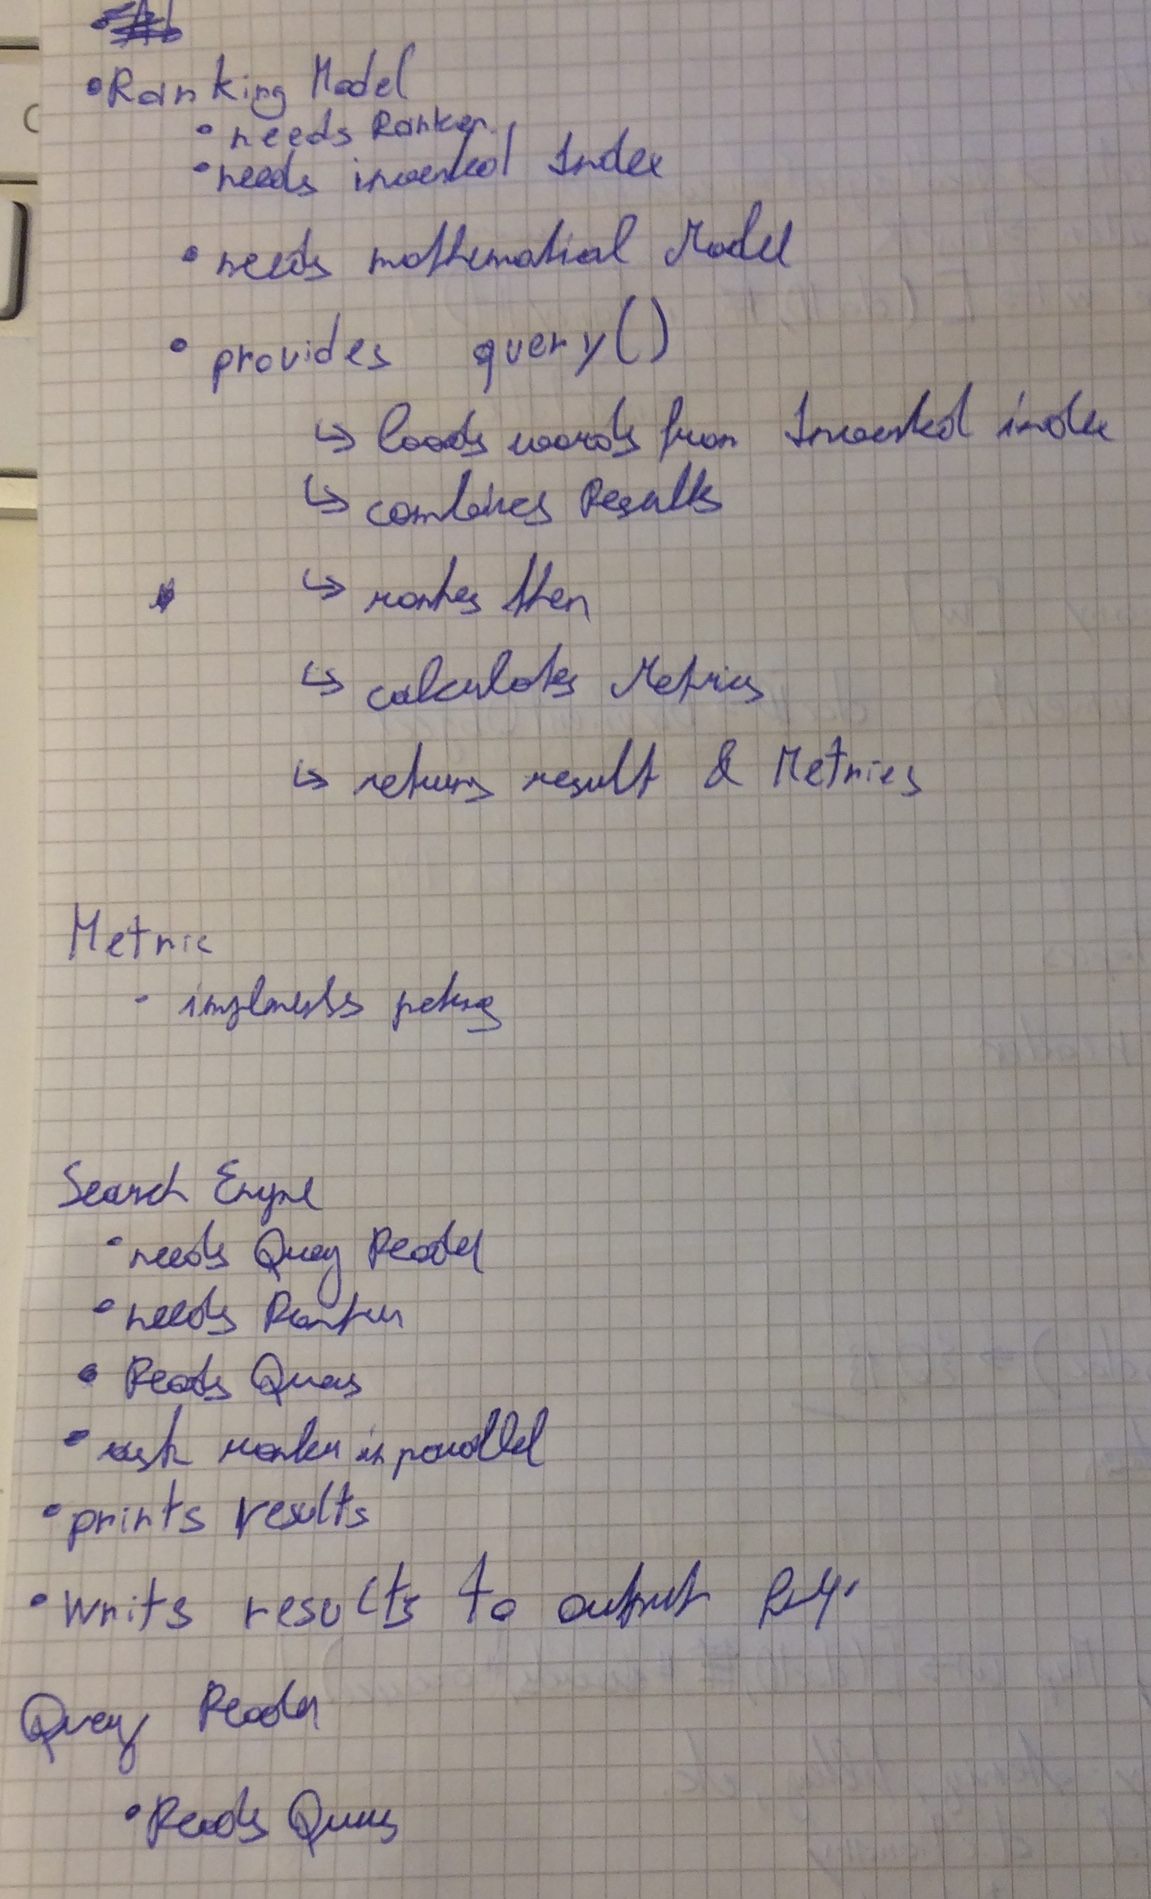 • Ranking Model
• needs Ranker
• needs inverted Index
• needs mathematical Model
• provides query()
↳ loads words from Inverted index
↳ combines Results
↳ ranks then
↳ calculates Metrics
↳ returns result & Metrics
Metric
- implments
Search Engine
• needs Query Reader
• needs Ranker
• Reads Querys
• ask ranker in parallel
• prints results
• writs results to output
Query Reader
• Reads Querys